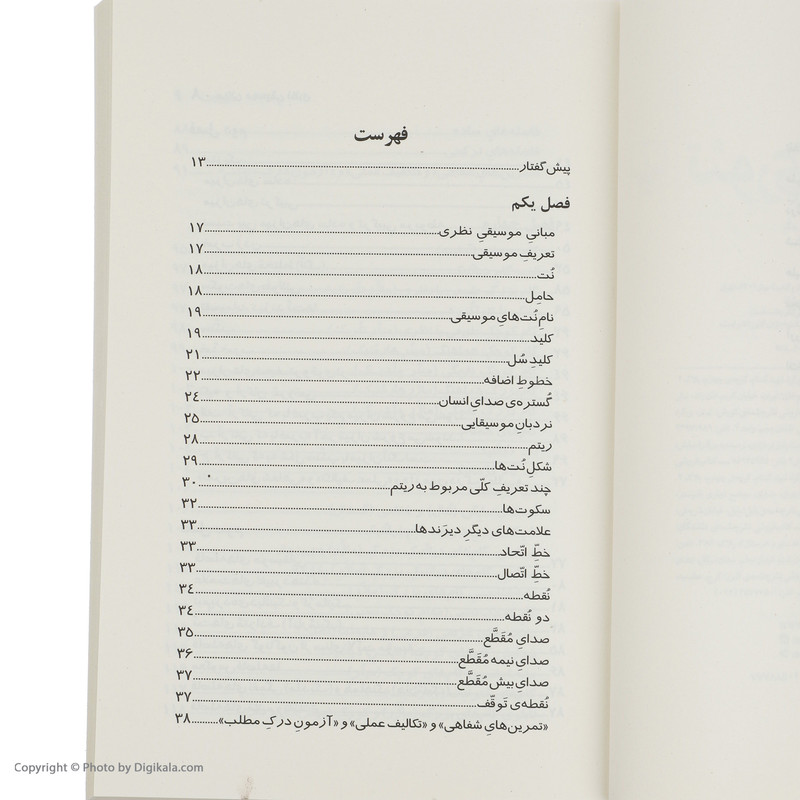 فهرست
پیش‌گفتار........۱۳
فصل یکم
مبانیِ موسیقیِ نظری........۱۷
تعریفِ موسیقی........۱۷
نُت........۱۸
حامِل........۱۸
نامِ نُت‌هایِ موسیقی........۱۹
کلید........۱۹
کلیدِ سُل........۲۱
خطوطِ اضافه........۲۲
گُستره‌ی صدایِ انسان........۲٤
نردبانِ موسیقایی........۲۵
ریتم........۲۸
شکلِ نُت‌ها........۲۹
چند تعریفِ کلّی مربوط به ریتم........۳۰
سکوت‌ها........۳۲
علامت‌های دیگرِ دیرَندها........۳۳
خطِّ اتّحاد........۳۳
خطِّ اتّصال........۳۳
نُقطه........۳٤
دو نُقطه........۳٤
صدایِ مُقَطَّع........۳۵
صدایِ نیمه مُقَطَّع........۳۶
صدایِ بیش مُقَطَّع........۳۷
نُقطه‌ی تَوقّف........۳۷
«تمرین‌هایِ شفاهی» و «تکالیف عملی» و «آزمونِ درکِ مطلب»........۳۸
Copyright © Photo by Digikala.com